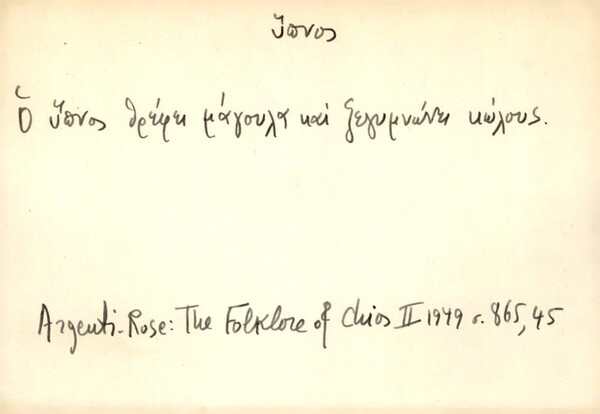 ὕπνος
Ὁ ὕπνος θρέφει μάγουλα καί ξεγυμνώνει κώλους.
Argenti-Rose: The Folklore of Chios II 1949 σ. 865,45